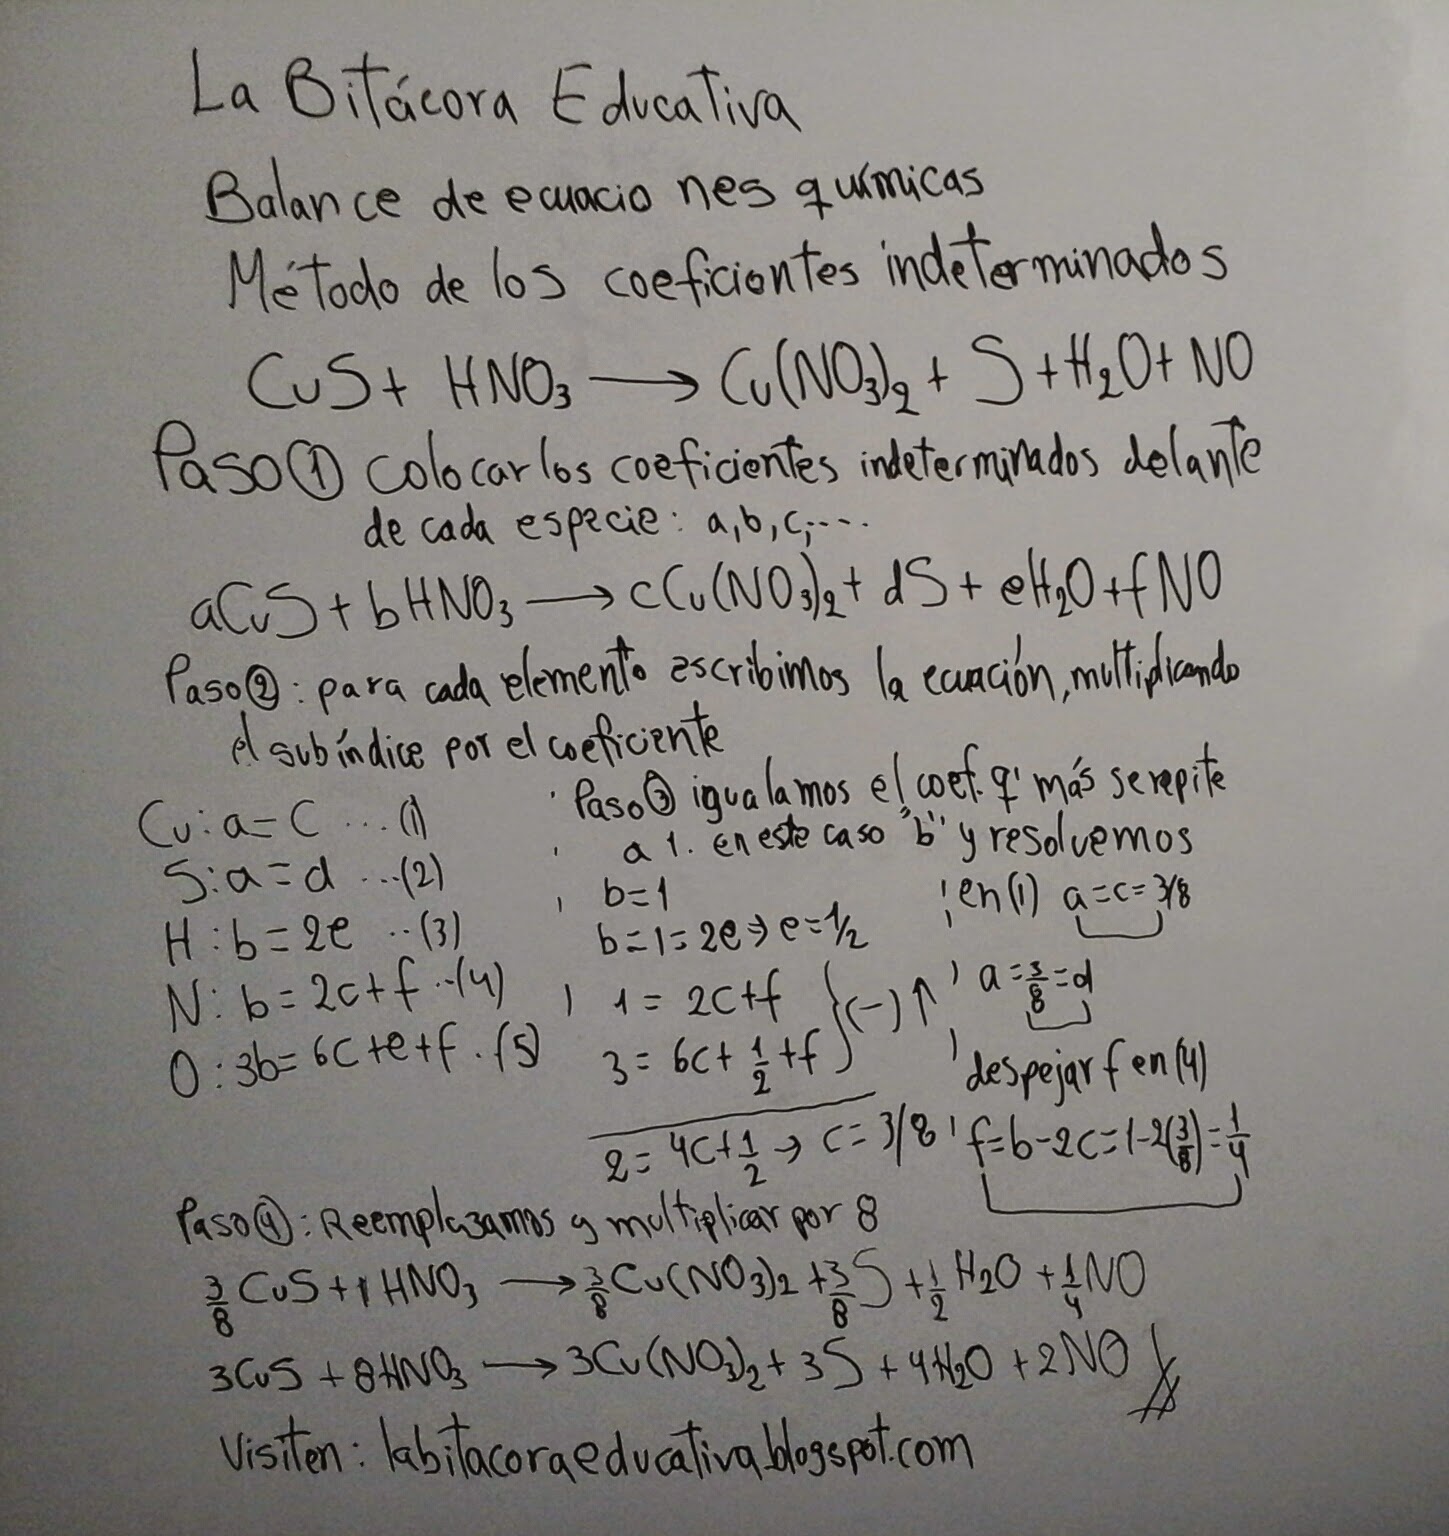 La Bitácora Educativa
Balance de ecuaciones químicas
Método de los coeficientes indeterminados
CuS + HNO₃ → Cu(NO₃)₂ + S + H₂O + NO
Paso ① colocar los coeficientes indeterminados delante
de cada especie: a, b, c, ....
aCuS + bHNO₃ → cCu(NO₃)₂ + dS + eH₂O + fNO
Paso ②: para cada elemento escribimos la ecuación, multiplicando
el subíndice por el coeficiente
Cu: a = c ... (1)
S: a = d ... (2)
H: b = 2e .. (3)
N: b = 2c + f .. (4)
O: 3b = 6c + e + f . (5)
Paso ③ igualamos el coef. q' más se repite
a 1. en este caso "b" y resolvemos
b = 1
b = 1 = 2e ⇒ e = 1/2
1 = 2c + f
3 = 6c + 1/2 + f } (-) ↑
2 = 4c + 1/2 → c = 3/8
en (1) a = c = 3/8
a = 3/8 = d
despejar f en (4)
f = b - 2c = 1 - 2(3/8) = 1/4
Paso ④: Reemplazamos y multiplicar por 8
3/8 CuS + 1 HNO₃ → 3/8 Cu(NO₃)₂ + 3/8 S + 1/2 H₂O + 1/4 NO
3CuS + 8HNO₃ → 3Cu(NO₃)₂ + 3S + 4H₂O + 2NO
Visiten: labitacoraeducativa.blogspot.com